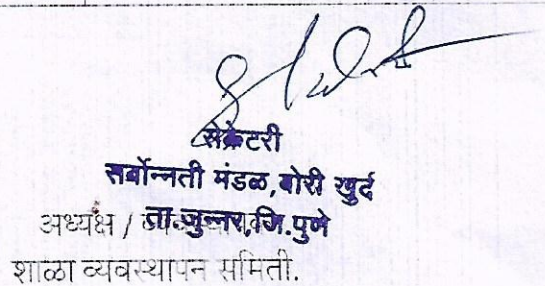 सेक्रेटरी
सर्वोन्नती मंडळ, बोरी खुर्द
ता.जुन्नर,जि.पुणे
अध्यक्ष /
शाळा व्यवस्थापन समिती.